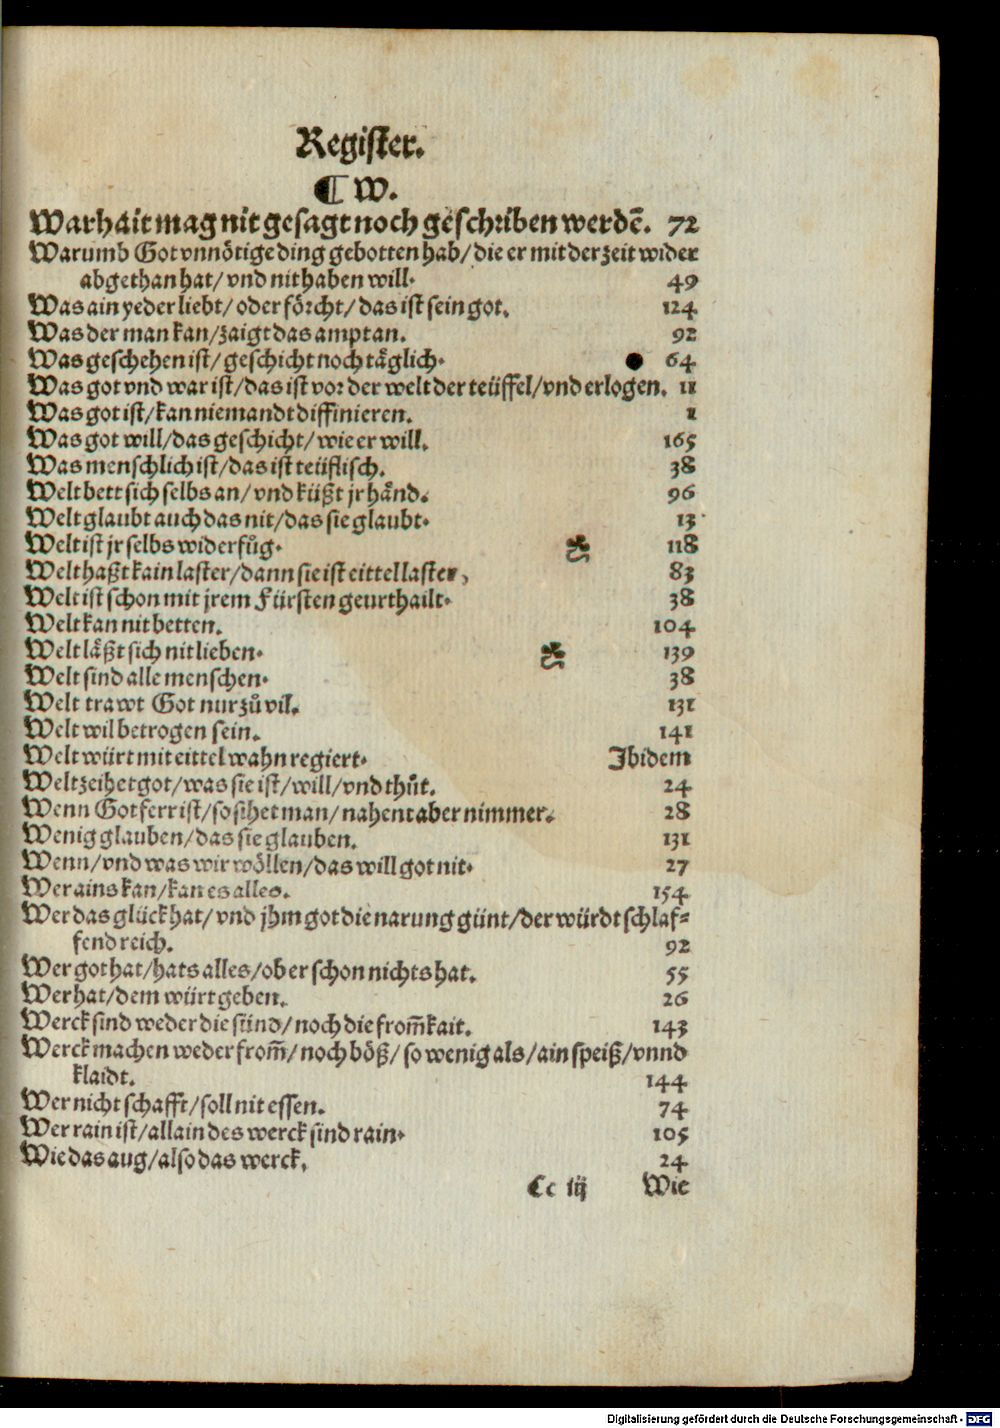 Register.
¶ W.
Warhait mag nit gesagt noch geschriben werdē. 72
Warumb Got vnnötige ding gebotten hab/ die er mit der zeit wider
abgethan hat/ vnd nit haben will. 49
Was ain yeder liebt/ oder förcht/ das ist sein got. 124
Was der man kan/ zaigt das ampt an. 92
Was geschehen ist/ geschicht noch täglich. 64
Was got vnd war ist/ das ist vor der welt der teüffel/ vnd erlogen. 11
Was got ist/ kan niemandt diffinieren. 1
Was got will/ das geschicht/ wie er will. 165
Was menschlich ist/ das ist teüflisch. 38
Welt bett sich selbs an/ vnd küßt jr händ. 96
Welt glaubt auch das nit/ das sie glaubt. 13
Welt ist jr selbs widerfůg. 118
Welt haßt kain laster/ dann sie ist eittel laster, 83
Welt ist schon mit jrem Fürsten geurthailt. 38
Welt kan nit betten. 104
Welt läßt sich nit lieben. 139
Welt sind alle menschen. 38
Welt trawt Got nur zů vil. 131
Welt wil betrogen sein. 141
Welt würt mit eittel wahn regiert. Ibidem
Welt zeihet got/ was sie ist/ will/ vnd thůt. 24
Wenn Got ferr ist/ so sihet man/ nahent aber nimmer. 28
Wenig glauben/ das sie glauben. 131
Wenn/ vnd was wir wöllen/ das will got nit. 27
Wer ains kan/ kan es alles. 154
Wer das glück hat/ vnd jhm got die narung günt/ der würdt schlaf⸗
fend reich. 92
Wer got hat/ hats alles/ ob er schon nichts hat. 55
Wer hat/ dem würt geben. 26
Werck sind weder die sünd/ noch die from̄kait. 143
Werck machen weder from̄/ noch böß/ so wenig als/ ain speiß/ vnnd
klaidt. 144
Wer nicht schafft/ soll nit essen. 74
Wer rain ist/ allain des werck sind rain. 105
Wie das aug/ also das werck. 24
Cc iij Wie
Digitalisierung gefördert durch die Deutsche Forschungsgemeinschaft - DFG